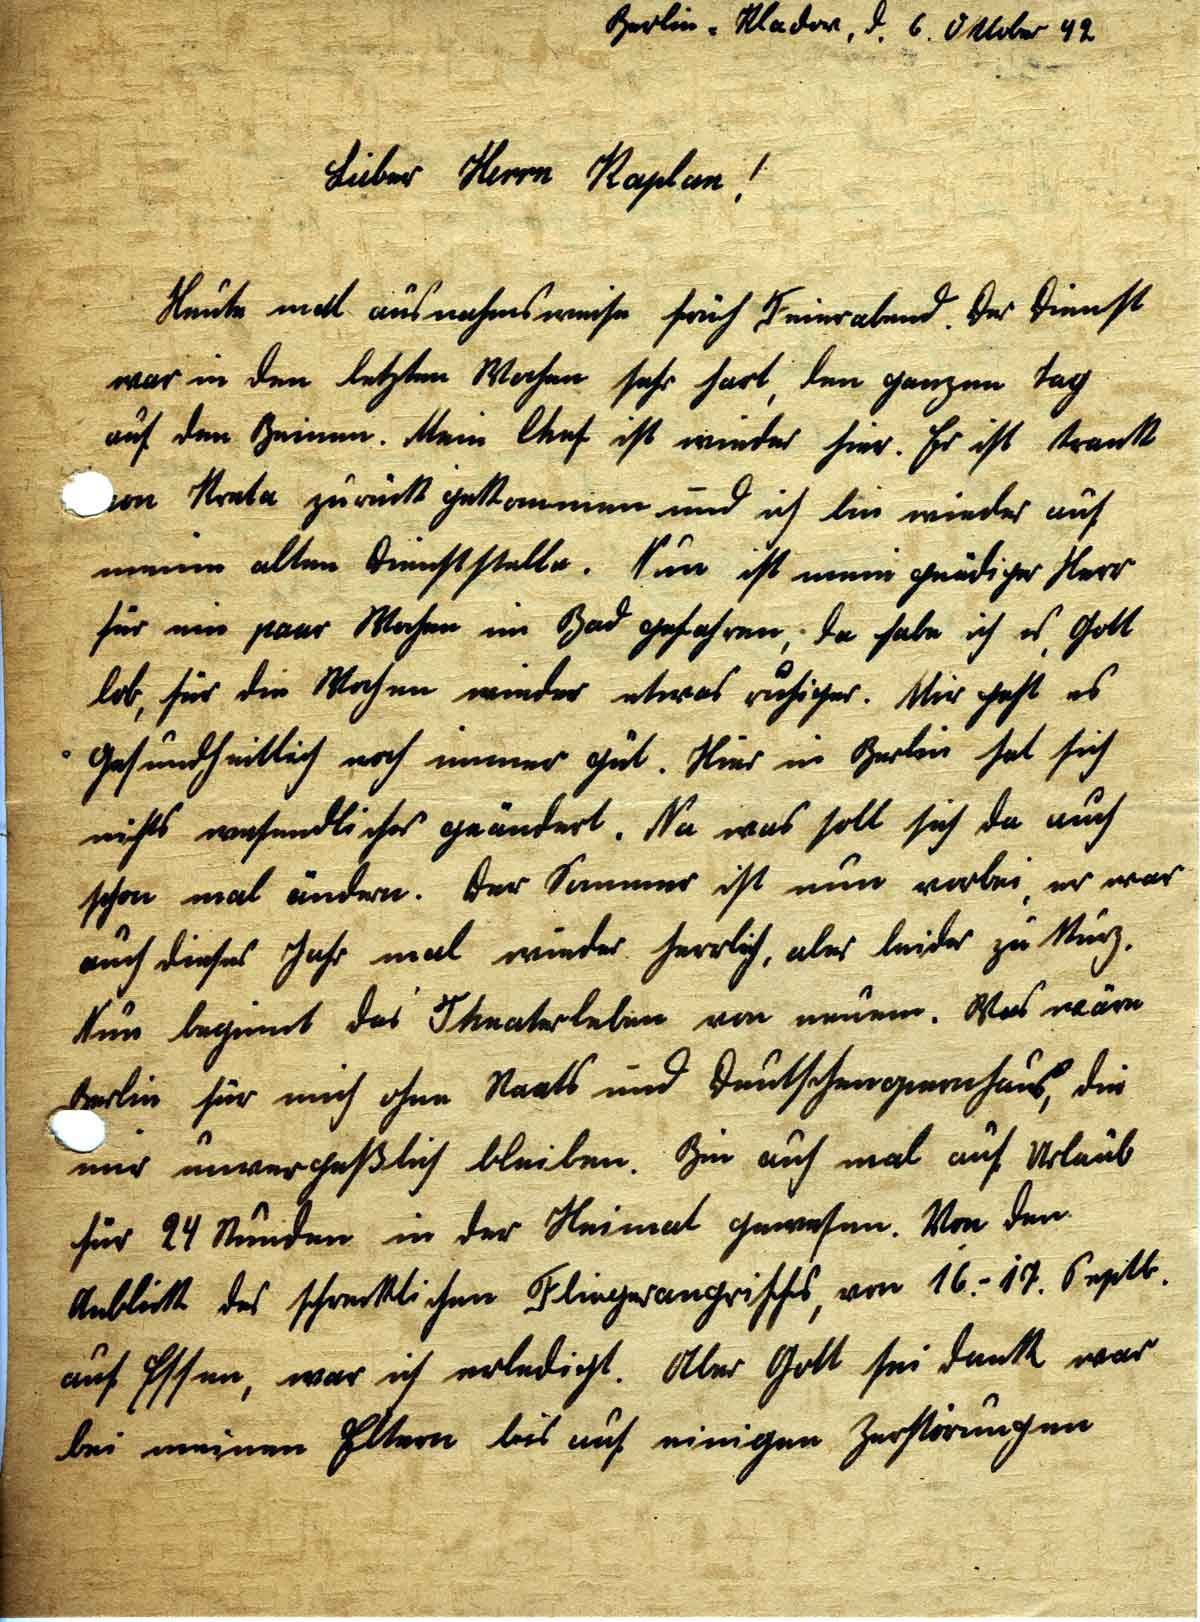 Berlin-Kladow, d. 6. Oktober 42
Lieber Herrn Kaplan!
Heute mal ausnahmsweise früh Feierabend. Der Dienst
war in den letzten Wochen sehr hart, den ganzen Tag
auf den Beinen. Mein Chef ist wieder hier. Er ist krank
von Kreta zurück gekommen und ich bin wieder auf
meine alten Dienststelle. Nun ist mein gnädiger Herr
für ein paar Wochen im Bad gefahren, da habe ich es, Gott
lob, für die Wochen wieder etwas ruhiger. Mir geht es
Gesundheitlich noch immer gut. Hier in Berlin hat sich
nichts wesendliches geändert. Na was soll sich da auch
schon mal ändern. Der Sommer ist nun vorbei, er war
auch dieses Jahr mal wieder herrlich, aber leider zu kurz.
Nun beginnt das Theaterleben von neuem. Was wäre
Berlin für mich ohne Staats und Deutschenopernhaus, die
mir unvergeßlich bleiben. Bin auch mal auf Urlaub
für 24 Stunden in der Heimat gewesen. Von den
Anblick des schrecklichen Fliegerangriffs, von 16.-17. Septb.
auf Essen, war ich erledigt. Aber Gott sei dank war
bei meinen Eltern bis auf einigen Zerstörungen